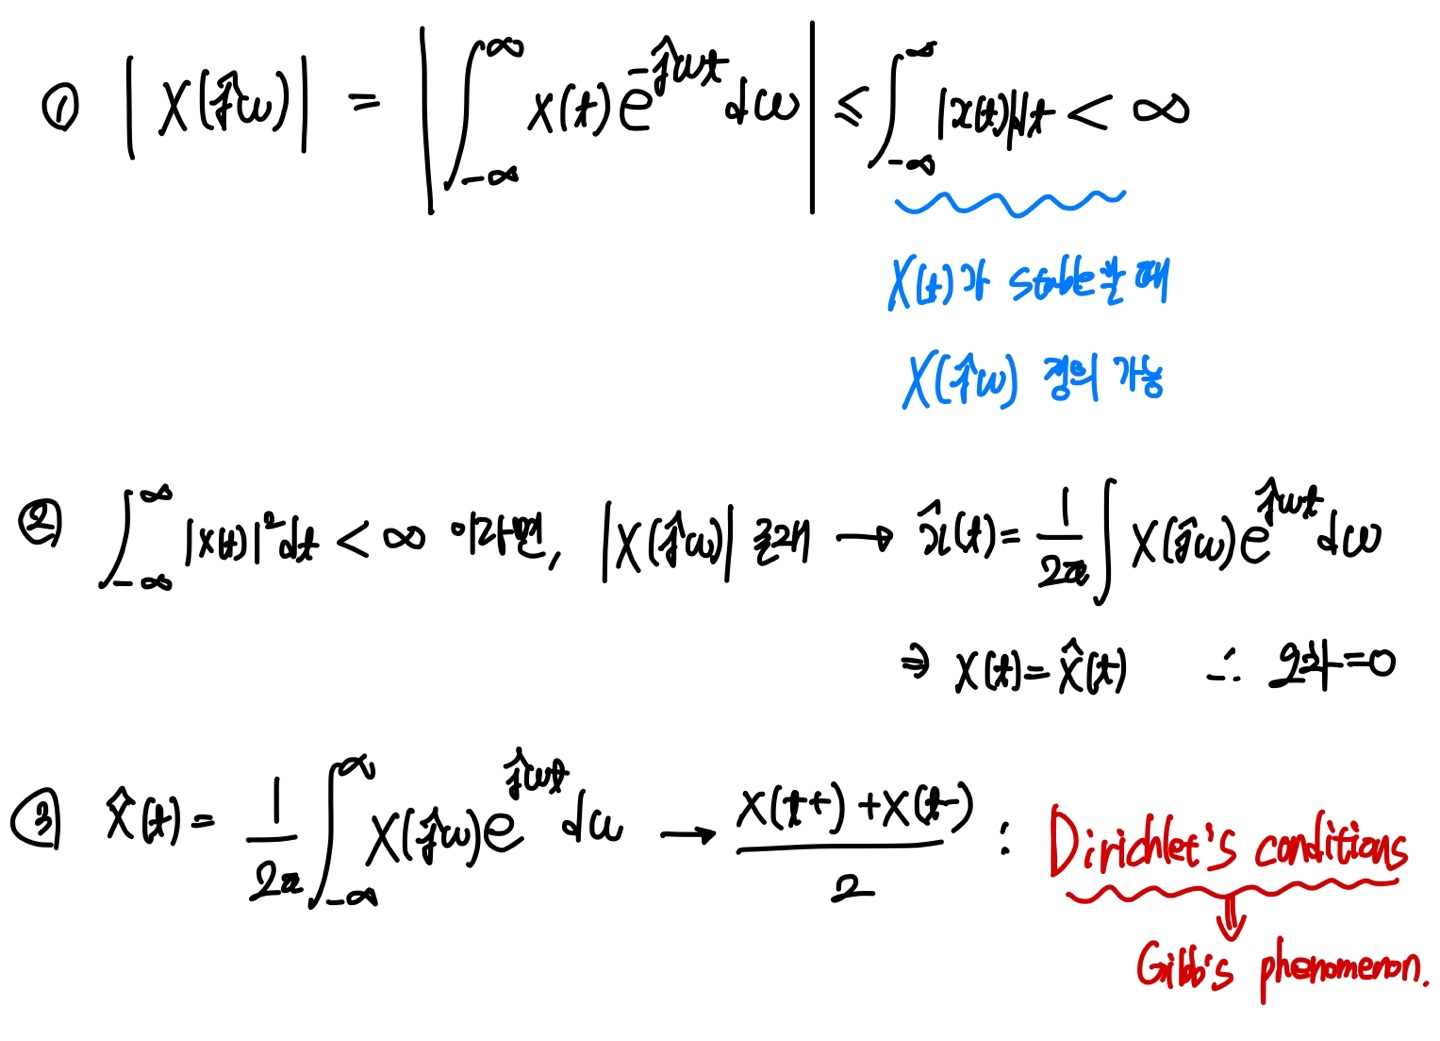 ① |X(ĵω)| = |∫_{-∞}^{∞} x(t) e^{-ĵωt} dω| ≤ ∫_{-∞}^{∞} |x(t)|dt < ∞
X(t)가 stable할 때
X(ĵω) 정의 가능
② ∫_{-∞}^{∞} |x(t)|²dt < ∞ 이라면, |X(ĵω)| 존재 → x̂(t) = 1/2π ∫ X(ĵω) e^{ĵωt} dω
⇒ x(t) = x̂(t) ∴ 오차=0
③ x̂(t) = 1/2π ∫_{-∞}^{∞} X(ĵω) e^{ĵωt} dω → (x(t+) + x(t-))/2 : Dirichlet's conditions
⇓
Gibb's phenomenon.